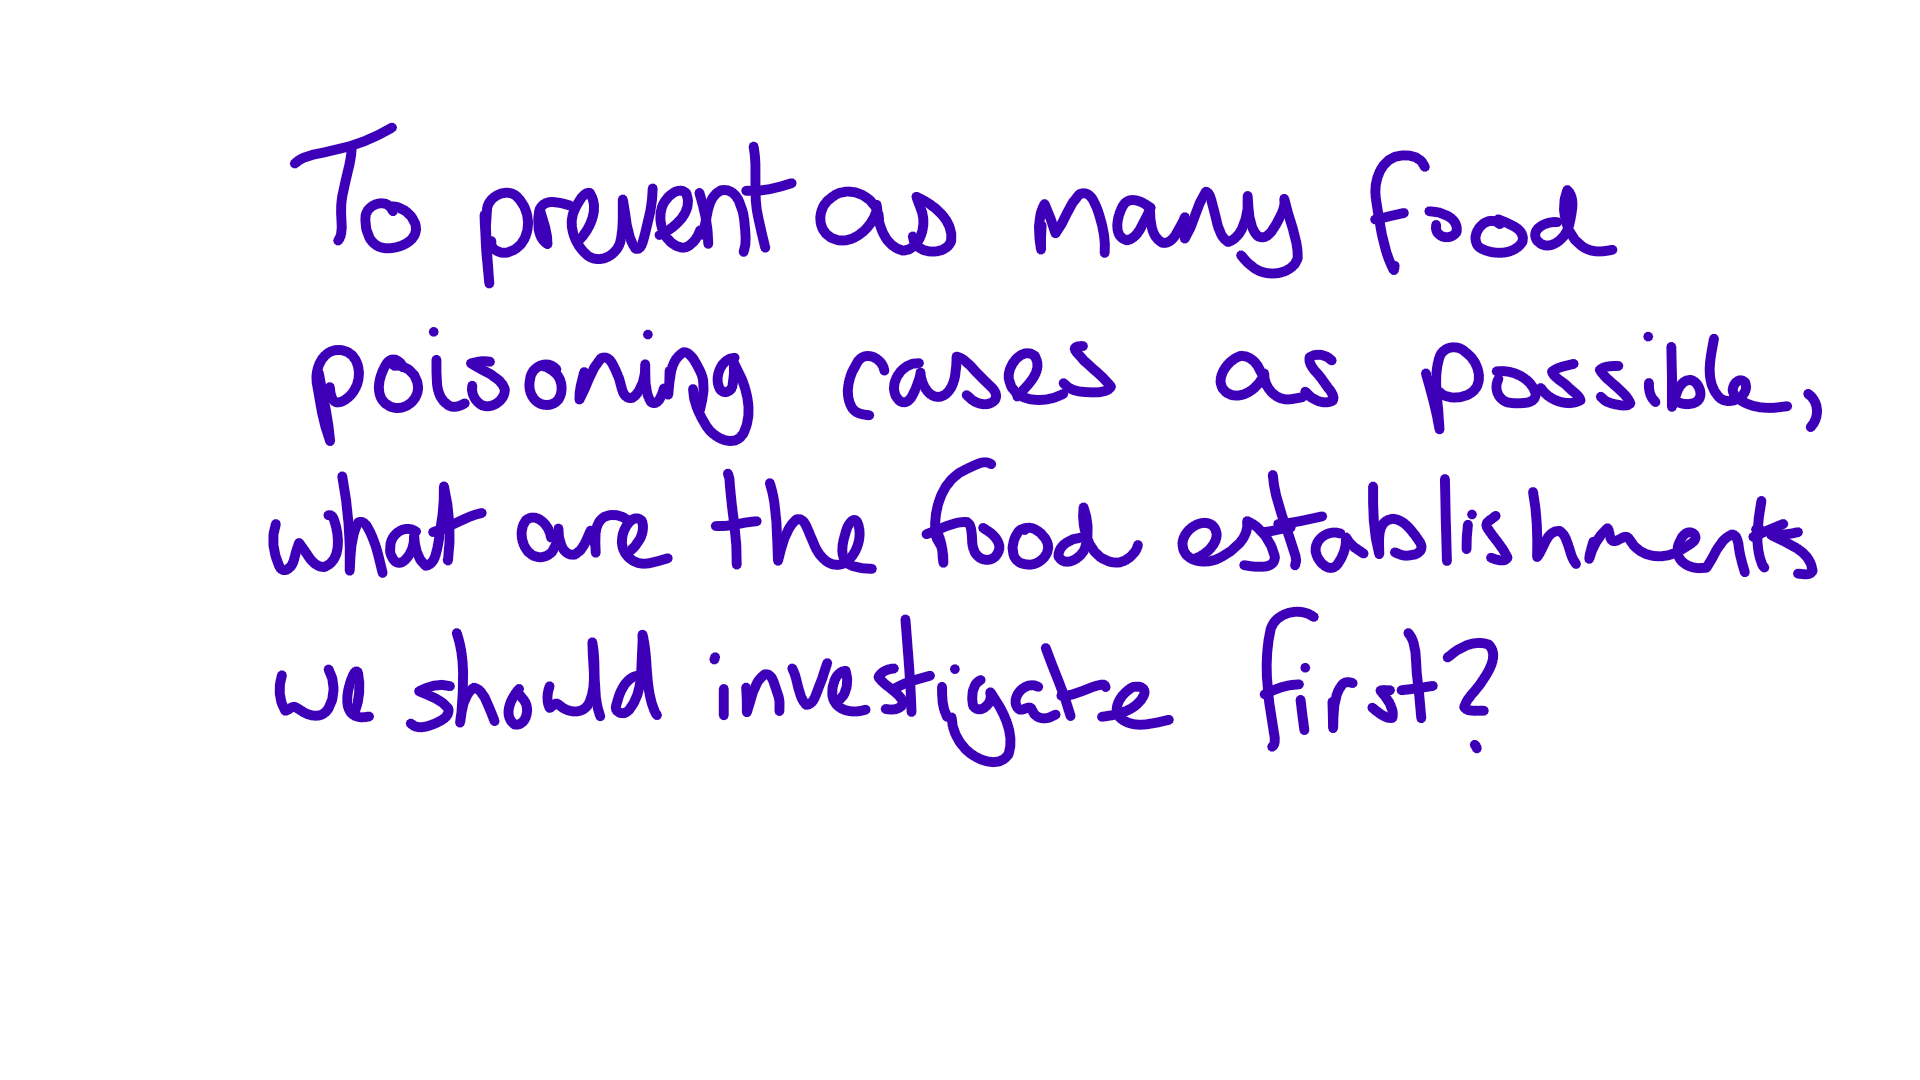 To prevent as many food
poisoning cases as possible,
what are the food establishments
we should investigate first?